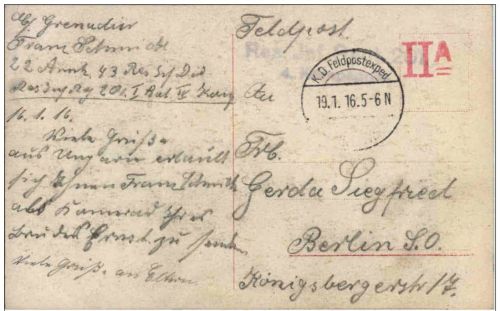 Abs. Grenadier
Franz Schmidt
22 Armk. 43 Res. Div
Res. Inf. Rg 201. I Bat. IV Komp
16.1.16.
Viele Grüße
aus Ungarn erlaubt
sich Ihnen Franz Schmidt
als Kamerad Ihres
Bruders Ernst zu senden
Viele Grüße an Eltern
Feldpost
4.
IIA
K.D. Feldpostexped.
19.1.16.5-6 N
An
Frl.
Gerda Siegfried
Berlin S.O.
Königsbergerstr 17.